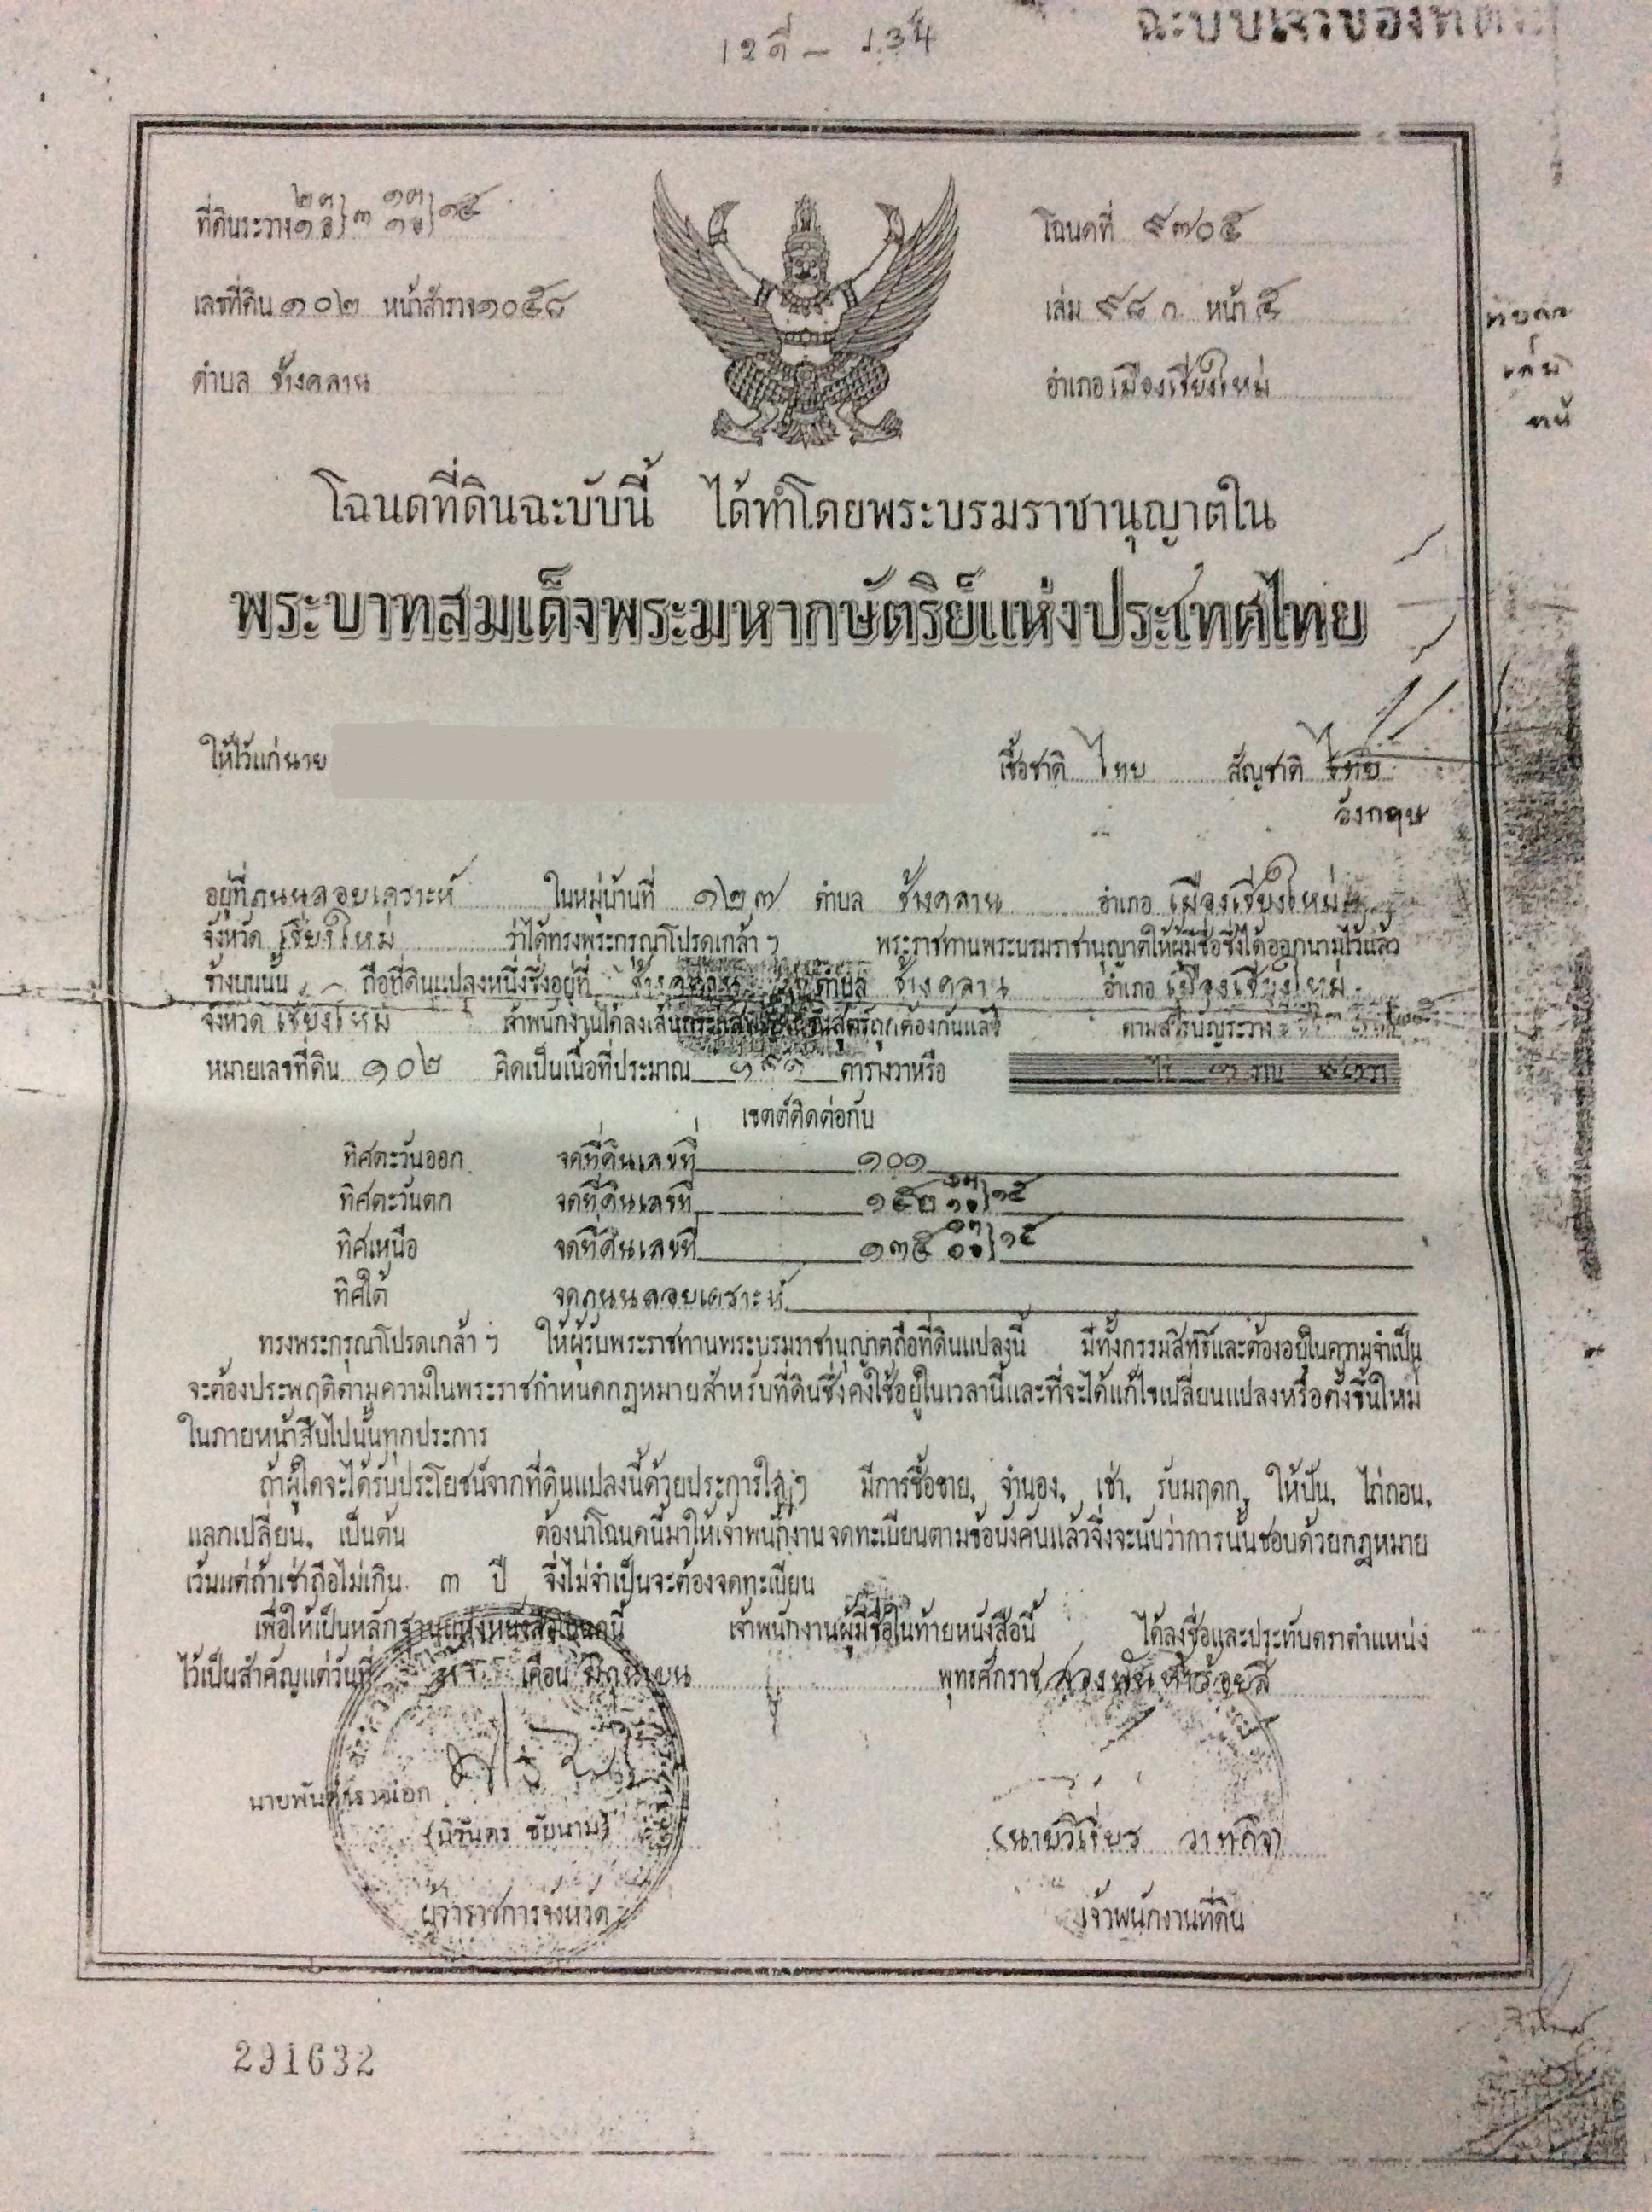 ที่ดินระวาง
โฉนดที่ ๙๗๐๕
เลขที่ดิน ๑๐๒ หน้าสำรวจ ๑๐๕๘
เล่ม ๙๘ ก หน้า ๕
ตำบล ช้างคลาน
อำเภอ เมืองเชียงใหม่
โฉนดที่ดินฉะบับนี้ ได้ทำโดยพระบรมราชานุญาตใน
พระบาทสมเด็จพระมหากษัตริย์แห่งประเทศไทย
ให้ไว้แก่ นาย เชื้อชาติ ไทย สัญชาติ ไทย
อังกฤษ
อยู่ที่ ถนนลอยเคราะห์ ในหมู่บ้านที่ ๑๒๗ ตำบล ช้างคลาน อำเภอ เมืองเชียงใหม่
จังหวัด เชียงใหม่ ว่าได้ทรงพระกรุณาโปรดเกล้า ฯ พระราชทานพระบรมราชานุญาตให้ผู้มีชื่อซึ่งได้ออกนามไว้แล้ว
ข้างบนนั้น ถือที่ดินแปลงหนึ่งซึ่งอยู่ที่ ช้างคลาน ตำบล ช้างคลาน อำเภอ เมืองเชียงใหม่
จังหวัด เชียงใหม่ เจ้าพนักงานได้ลงเส้น ถูกต้องกันแล้ว ตามสารบัญระวาง
หมายเลขที่ดิน ๑๐๒ คิดเป็นเนื้อที่ประมาณ ตารางวาหรือ
เขตต์ติดต่อกับ
ทิศตะวันออก จดที่ดินเลขที่ ๑๐๑
ทิศตะวันตก จดที่ดินเลขที่
ทิศเหนือ จดที่ดินเลขที่
ทิศใต้ จดถนนลอยเคราะห์
ทรงพระกรุณาโปรดเกล้า ฯ ให้ผู้รับพระราชทานพระบรมราชานุญาตถือที่ดินแปลงนี้ มีทั้งกรรมสิทธิ์และต้องอยู่ในความจำเป็น
จะต้องประพฤติตามความในพระราชกำหนดกฎหมายสำหรับที่ดินซึ่งคงใช้อยู่ในเวลานี้และที่จะได้แก้ไขเปลี่ยนแปลงหรือตั้งขึ้นใหม่
ในภายหน้าสืบไปนั้นทุกประการ
ถ้าผู้ใดจะได้รับประโยชน์จากที่ดินแปลงนี้ด้วยประการใด ๆ มีการซื้อขาย, จำนอง, เช่า, รับมฤดก, ให้ปัน, ไถ่ถอน,
แลกเปลี่ยน, เป็นต้น ต้องนำโฉนดนี้มาให้เจ้าพนักงานจดทะเบียนตามข้อบังคับแล้วจึ่งจะนับว่าการนั้นชอบด้วยกฎหมาย
เว้นแต่ถ้าเช่าถือไม่เกิน ๓ ปี จึ่งไม่จำเป็นจะต้องจดทะเบียน
เพื่อให้เป็นหลักฐานแห่งหนังสือโฉนดนี้ เจ้าพนักงานผู้มีชื่อในท้ายหนังสือนี้ ได้ลงชื่อและประทับตราตำแหน่ง
ไว้เป็นสำคัญแต่วันที่ เดือน มิถุนายน พุทธศักราช สองพันห้าร้อยสี่
นายพันตำรวจเอก
(นิรันดร ชัยนาม)
(นายวิเชียร วาทกิจ)
ผู้ว่าราชการจังหวัด
เจ้าพนักงานที่ดิน
291632